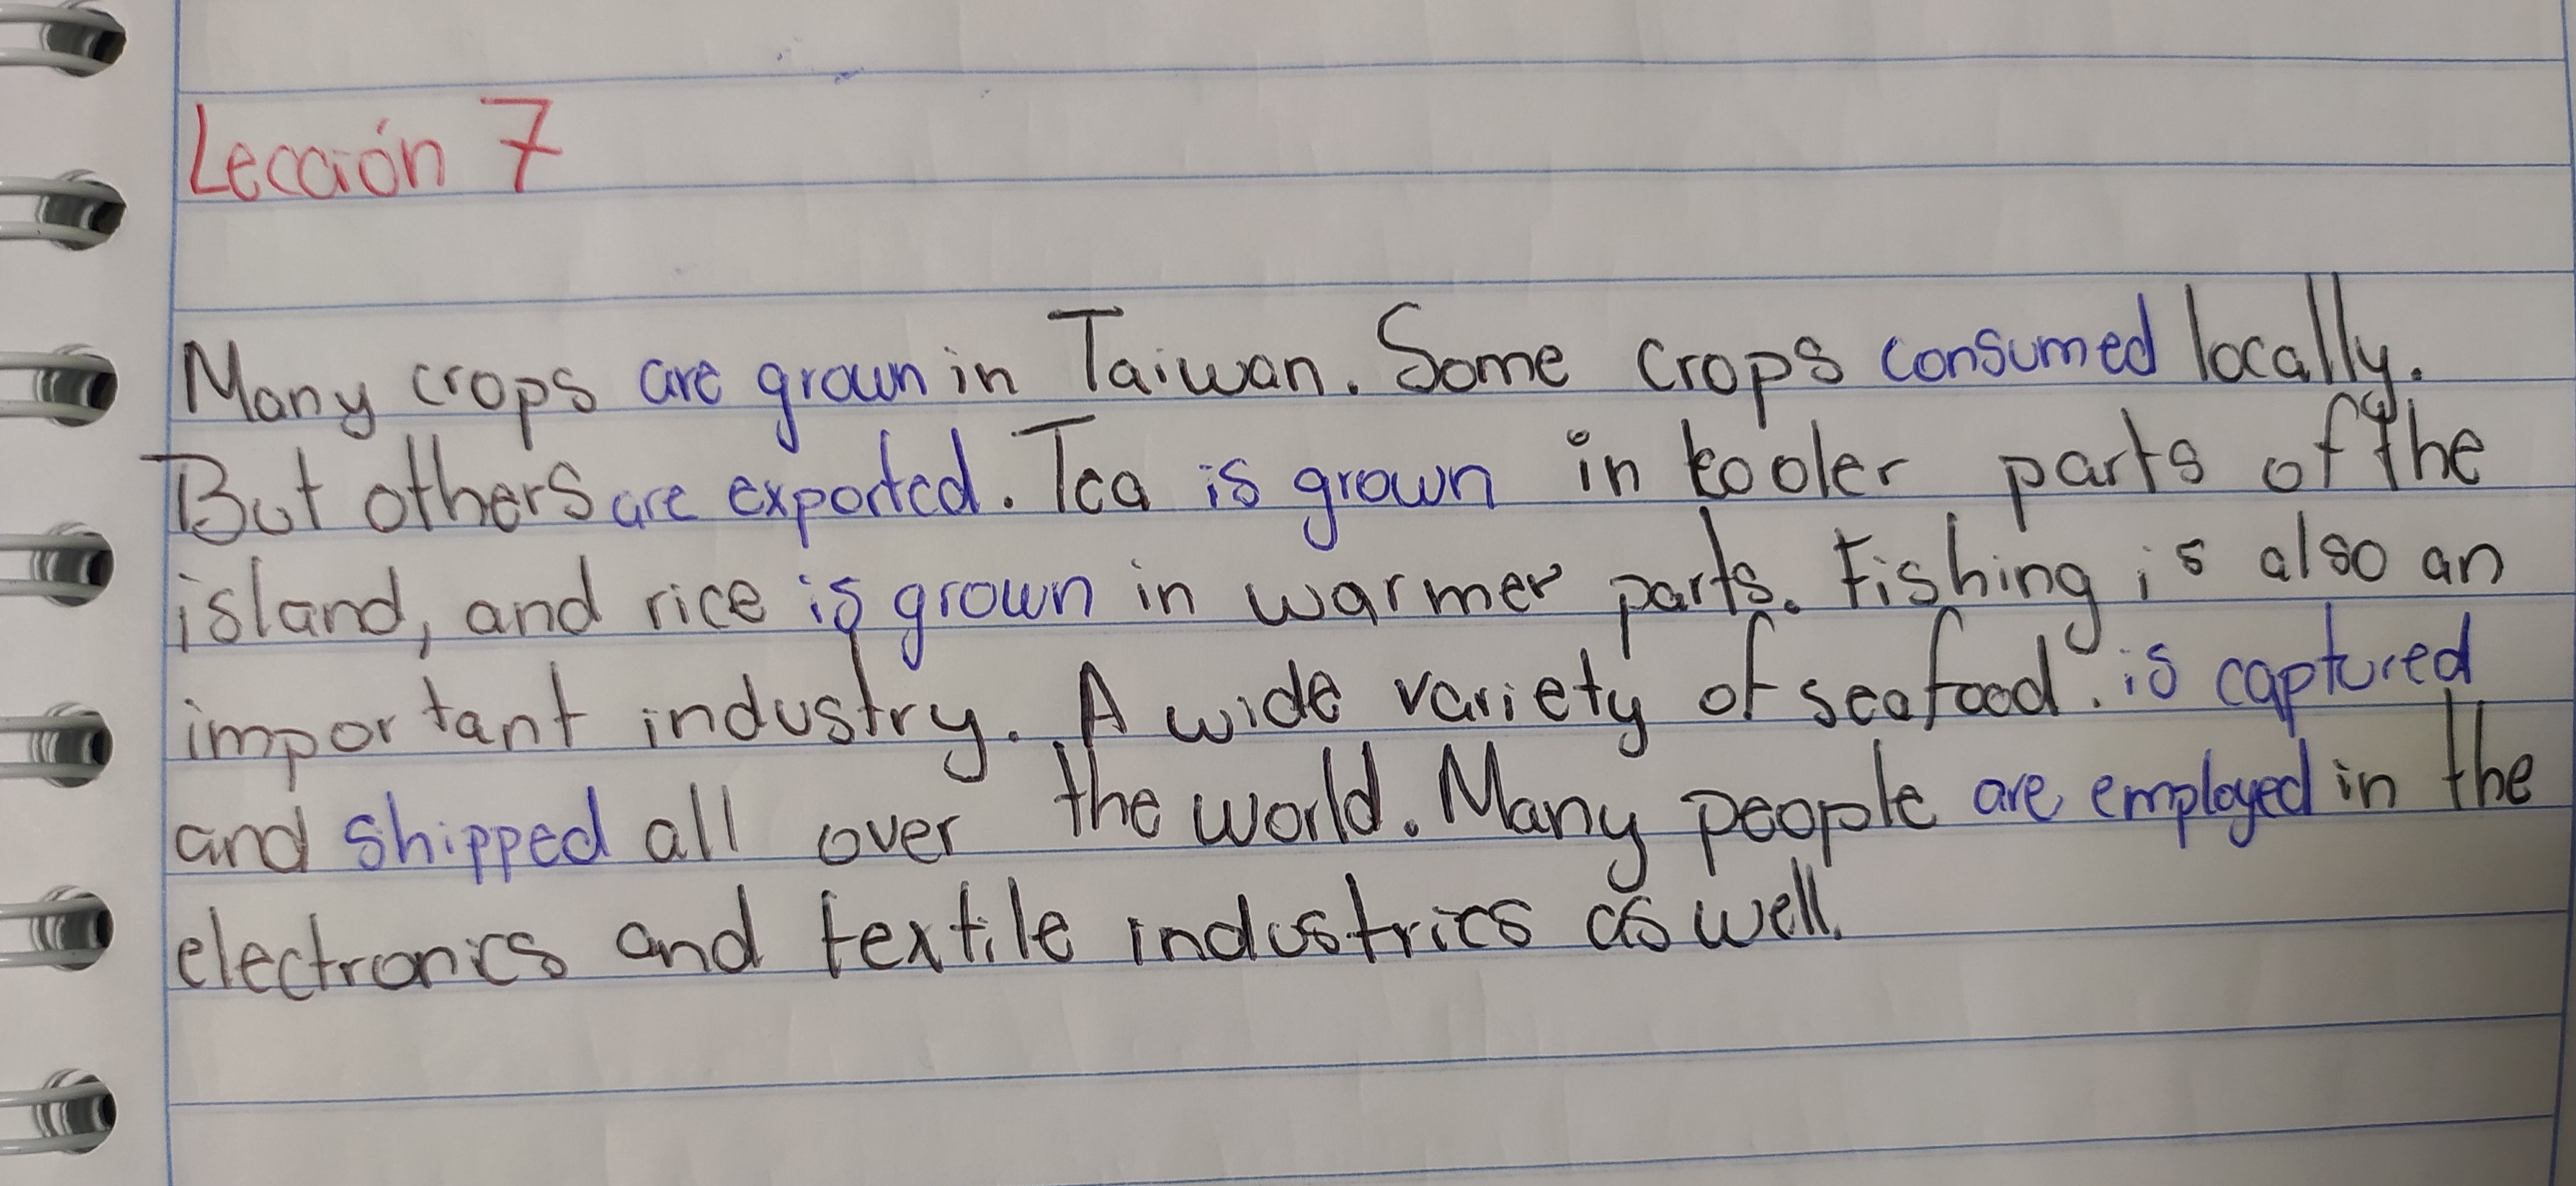 Lección 7
Many crops are grown in Taiwan. Some crops consumed locally.
But others are exported. Tea is grown in kooler parts of the
island, and rice is grown in warmer parts. Fishing is also an
important industry. A wide variety of seafood. is captured
and shipped all over the world. Many people are employed in the
electronics and textile industries as well.